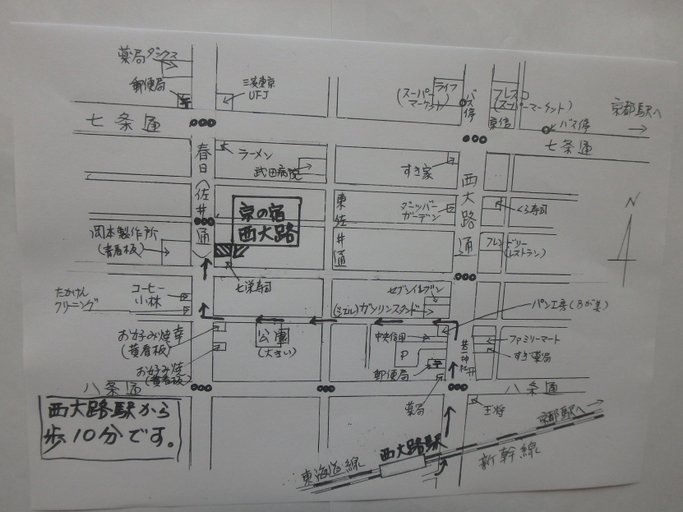 薬局ダックス
郵便局
三菱東京
UFJ
ライフ
(スーパー
マーケット)
バス停
フレス
(スーパーマーケット)
京都駅へ
バス停
七条通
七条通
春日(佐井)通
ラーメン
武田病院
すき家
西大路通
京の宿
西大路
東佐井通
ガーデン
くら寿司
フレンドリー
(レストラン)
岡本製作所
(青看板)
七栄寿司
たかけん
クリーニング
コーヒー
小林
セブンイレブン
(シェル)ガソリンスタンド
パン工房
お好み焼幸
(黄看板)
公園
(大きい)
中央信用
P
ファミリーマート
すぎ薬局
お好み焼
(黄看板)
郵便局
八条通
八条通
薬局
王将
西大路駅から
歩10分です。
西大路駅
東海道線
新幹線
京都駅へ